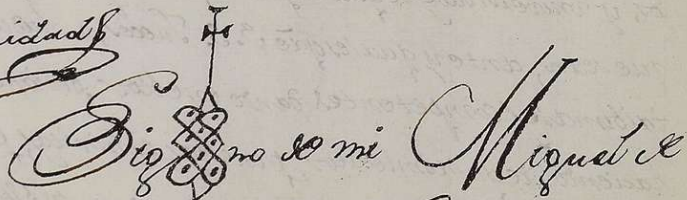 idad
Sig no de mi Miguel de